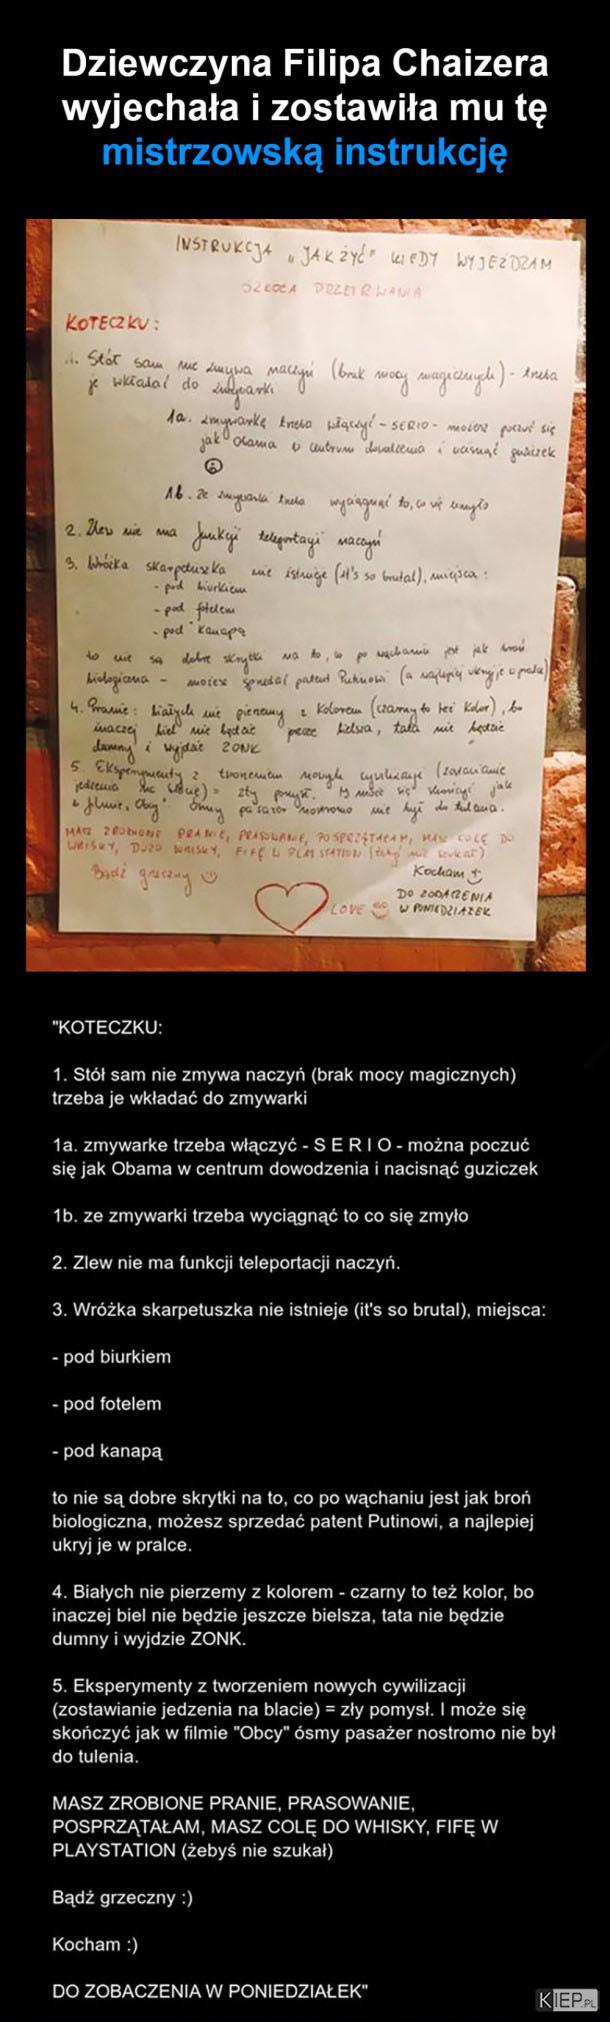 Dziewczyna Filipa Chaizera
wyjechała i zostawiła mu tę
mistrzowską instrukcję
INSTRUKCJA "JAK ŻYĆ" KIEDY WYJEŻDŻAM
SZKOŁA PRZETRWANIA
KOTECZKU:
1. Stół sam nie zmywa naczyń (brak mocy magicznych) - trzeba
je wkładać do zmywarki
1a. zmywarkę trzeba włączyć - SERIO - możesz poczuć się
jak Obama w centrum dowodzenia i nacisnąć guziczek
1b. Ze zmywarki trzeba wyciągnąć to, co się umyło
2. Zlew nie ma funkcji teleportacji naczyń
3. Wróżka skarpetuszka nie istnieje (it's so brutal), miejsca:
- pod biurkiem
- pod fotelem
- pod kanapą
to nie są dobre skrytki na to, co po wąchaniu jest jak broń
biologiczna - możesz sprzedać patent Putinowi (a najlepiej ukryj je w pralce)
4. Pranie: białych nie pierzemy z kolorem (czarny to też kolor), bo
inaczej biel nie będzie bielsza, tata nie będzie
dumny i wyjdzie ZONK
5. Eksperymenty z tworzeniem nowych cywilizacji (zostawianie
jedzenia na blacie) = zły pomysł. I może się skończyć jak
w filmie "Obcy" ósmy pasażer nostromo nie był do tulana.
MASZ ZROBIONE PRANIE, PRASOWANIE, POSPRZĄTAŁAM, MASZ COLĘ DO
WHISKY, DUŻO WHISKY, FIFĘ W PLAYSTATION (żebyś nie szukał)
Bądź grzeczny
Kocham
DO ZOBACZENIA
LOVE W PONIEDZIAŁEK
"KOTECZKU:
1. Stół sam nie zmywa naczyń (brak mocy magicznych)
trzeba je wkładać do zmywarki
1a. zmywarke trzeba włączyć - S E R I O - można poczuć
się jak Obama w centrum dowodzenia i nacisnąć guziczek
1b. ze zmywarki trzeba wyciągnąć to co się zmyło
2. Zlew nie ma funkcji teleportacji naczyń.
3. Wróżka skarpetuszka nie istnieje (it's so brutal), miejsca:
- pod biurkiem
- pod fotelem
- pod kanapą
to nie są dobre skrytki na to, co po wąchaniu jest jak broń
biologiczna, możesz sprzedać patent Putinowi, a najlepiej
ukryj je w pralce.
4. Białych nie pierzemy z kolorem - czarny to też kolor, bo
inaczej biel nie będzie jeszcze bielsza, tata nie będzie
dumny i wyjdzie ZONK.
5. Eksperymenty z tworzeniem nowych cywilizacji
(zostawianie jedzenia na blacie) = zły pomysł. I może się
skończyć jak w filmie "Obcy" ósmy pasażer nostromo nie był
do tulenia.
MASZ ZROBIONE PRANIE, PRASOWANIE,
POSPRZĄTAŁAM, MASZ COLĘ DO WHISKY, FIFĘ W
PLAYSTATION (żebyś nie szukał)
Bądź grzeczny :)
Kocham :)
DO ZOBACZENIA W PONIEDZIAŁEK"
KIEP.PL